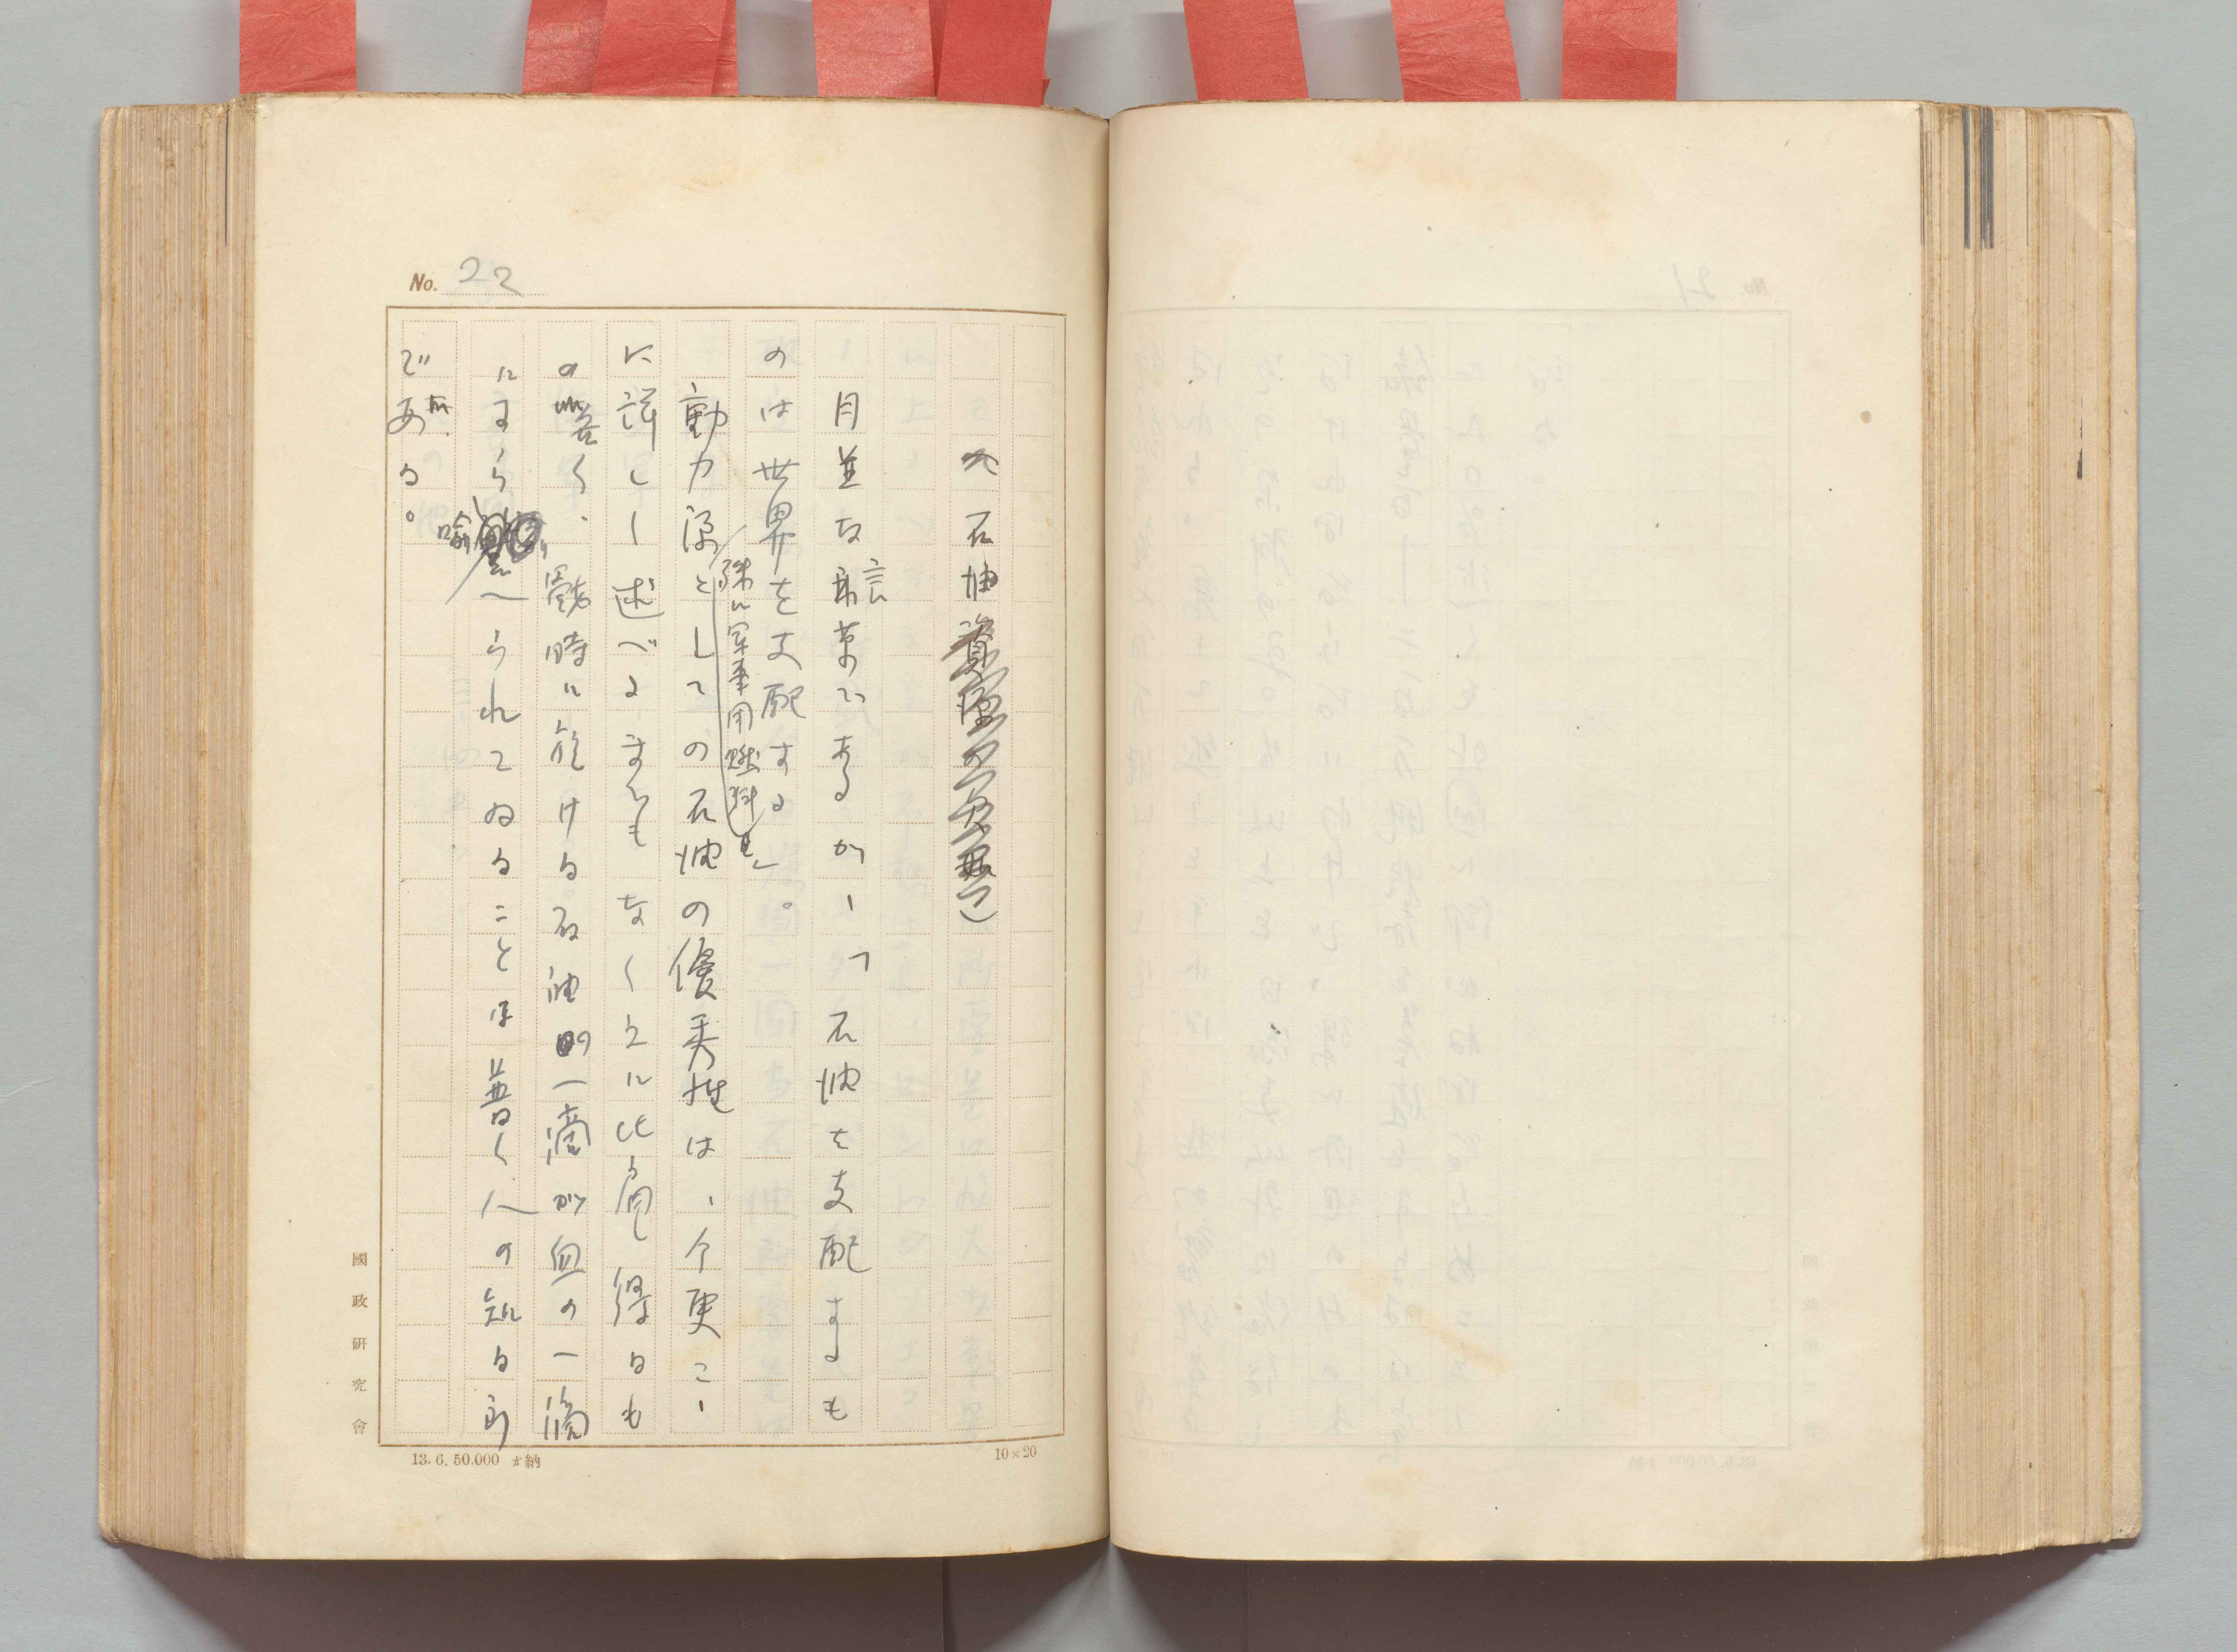 No. 22
石油
月並な言草であるが、「石油を支配するも
のは世界を支配する」。
殊に軍事用燃料
動力源としての石油の優秀性は、今更こゝ
に詳しく述べるまでもなく之に比肩し得るも
の無く、戦時に於ける石油の一滴が血の一滴
にすら喩へられてゐることは普く人の知る所
である。
國政研究會
13. 6. 50.000 納
10×20